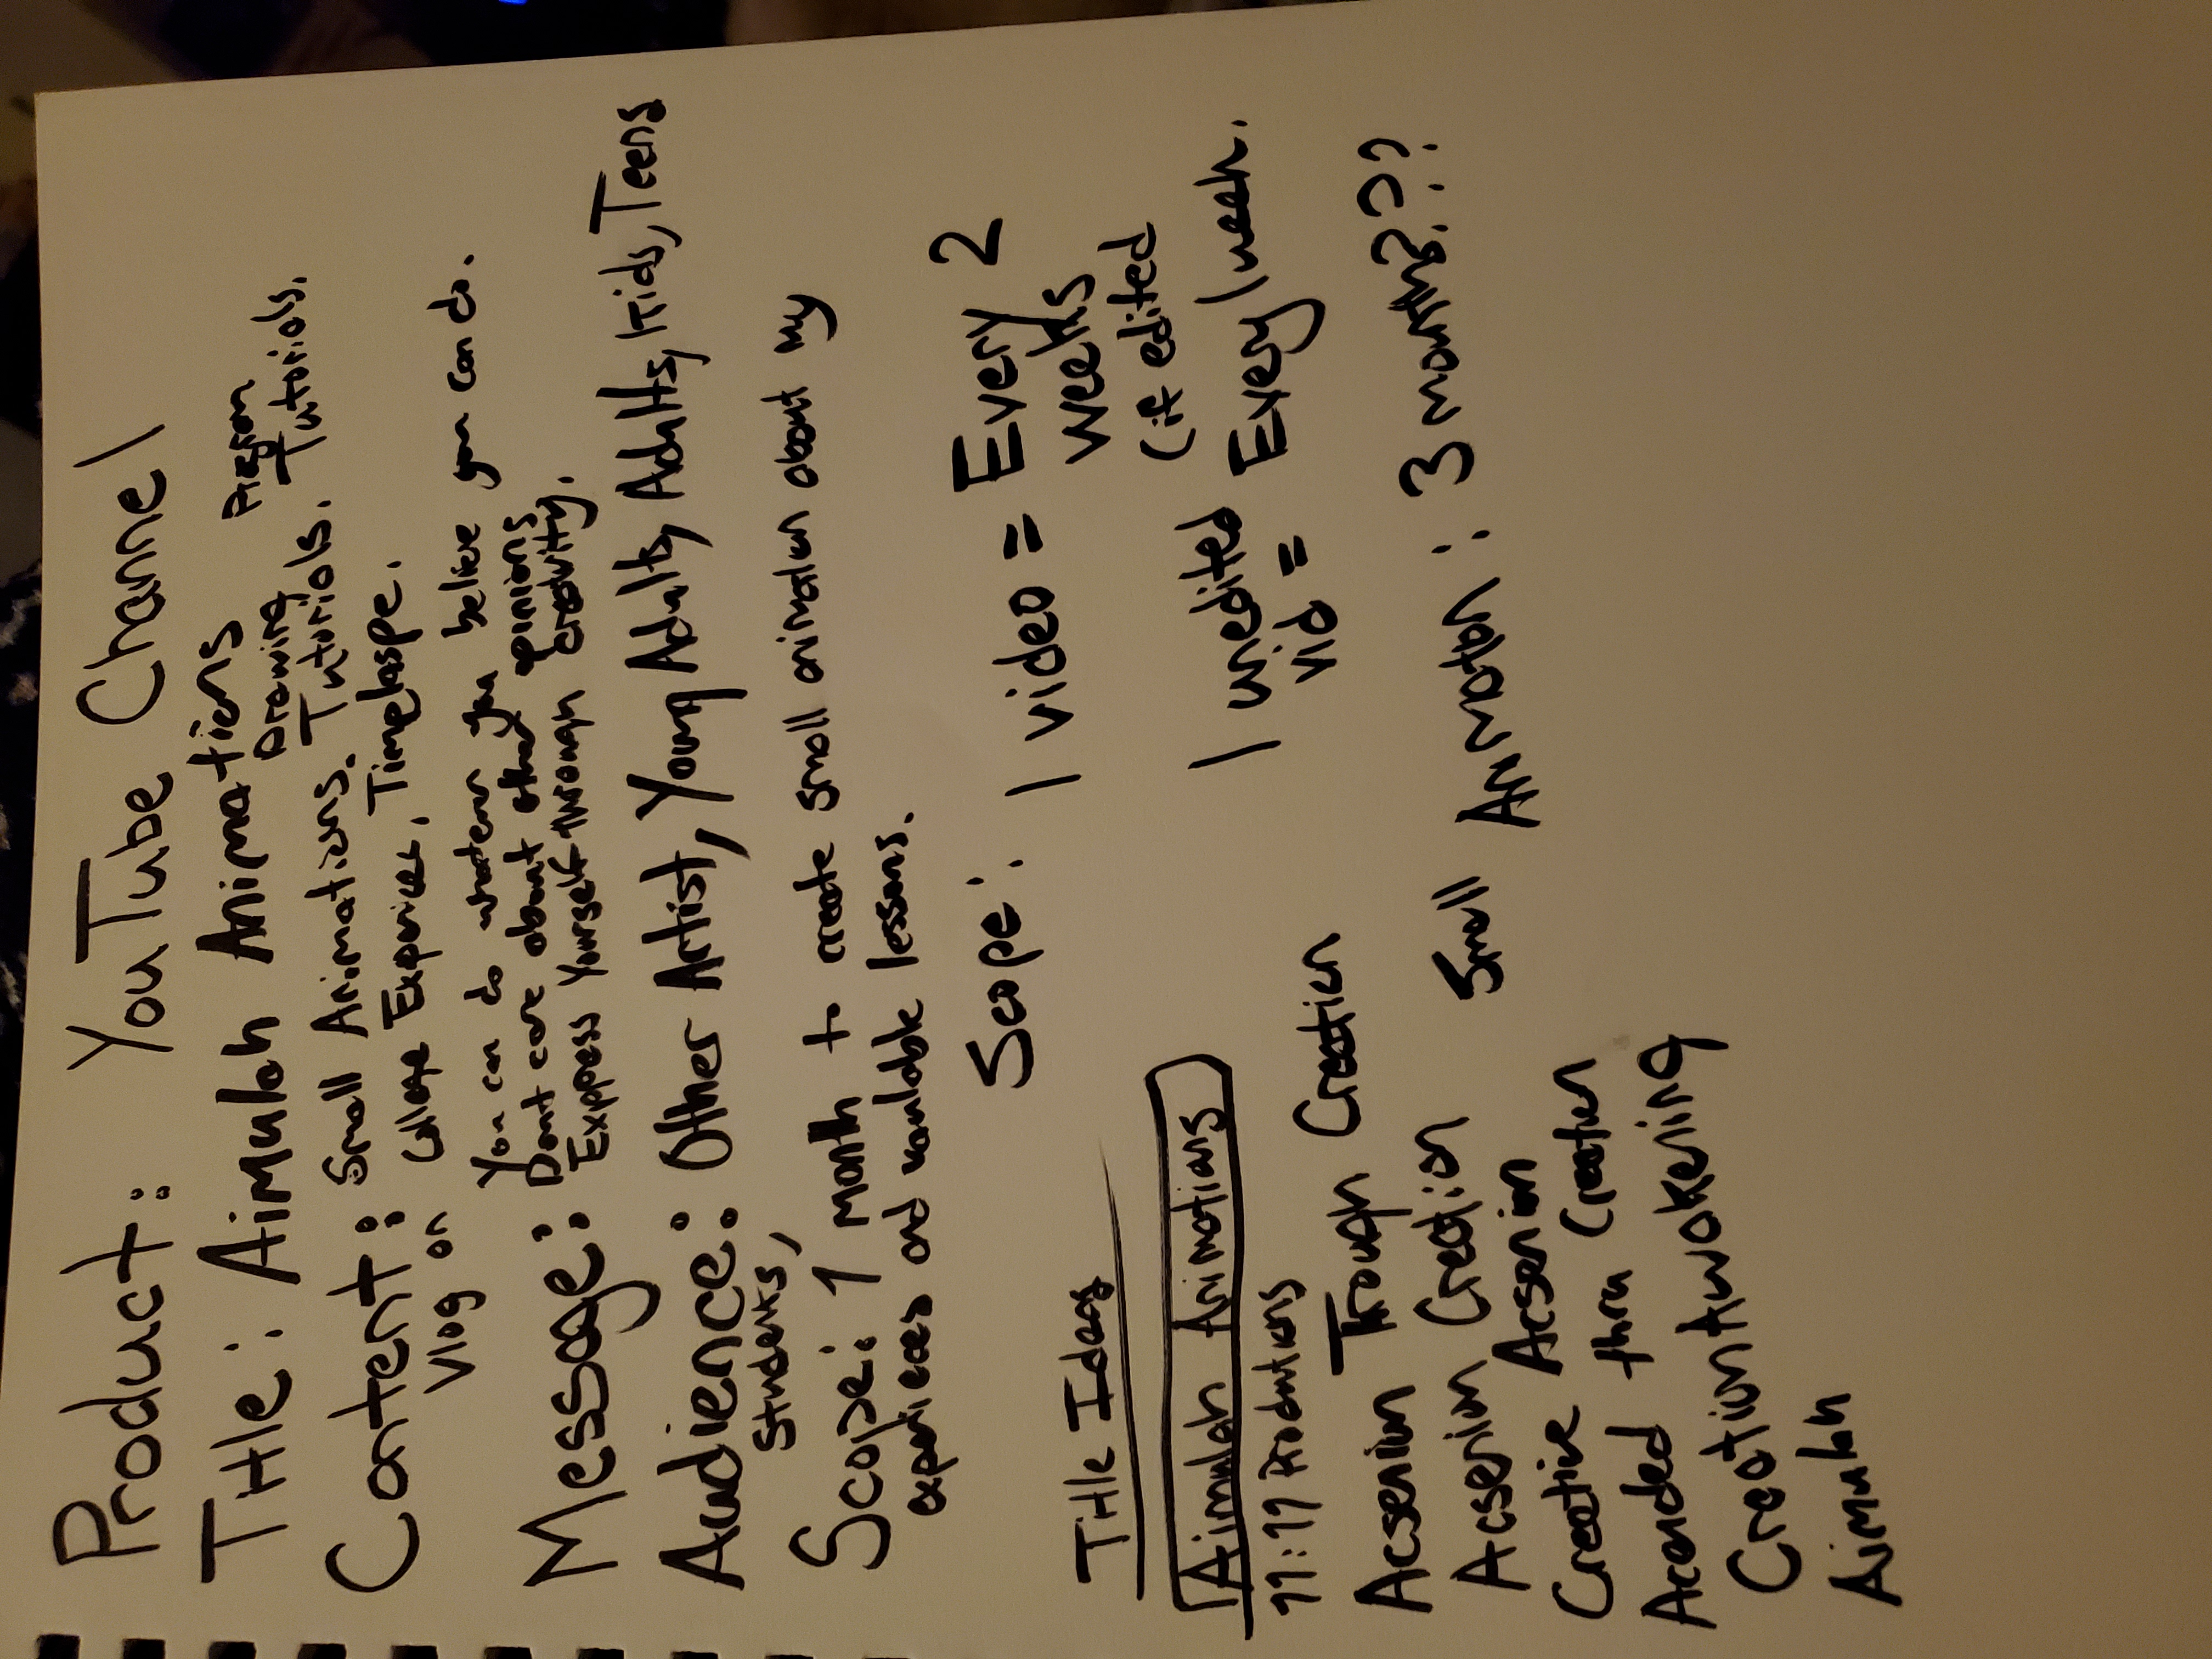 Product: YouTube Channel
Title: Aimulah Animations
Content: Small Animations. Drawing Tutorials. Program Tutorials.
Vlog on College Experices, Timelaspe.
Message: You can do whatever you believe you can do.
Dont care about other opinions
Exppress Yourself through creativity.
Audience: Other Artist, Young Adults, Adults, Kids, Teens
Students,
Scope: 1 month to create small animation about my
experieces and vaulable lessons.
Scope: 1 video = Every 2
weeks
(if edited
1 unedited
vid = Every 1 week.
Small Animation: 3 months???
Title Ideas
Aimulah Animations
11:11 Productions
Acsenion Through Creation
Acsenion Creation
Creative Acsenion
thru Creation
Creation Awakening
Aimulah